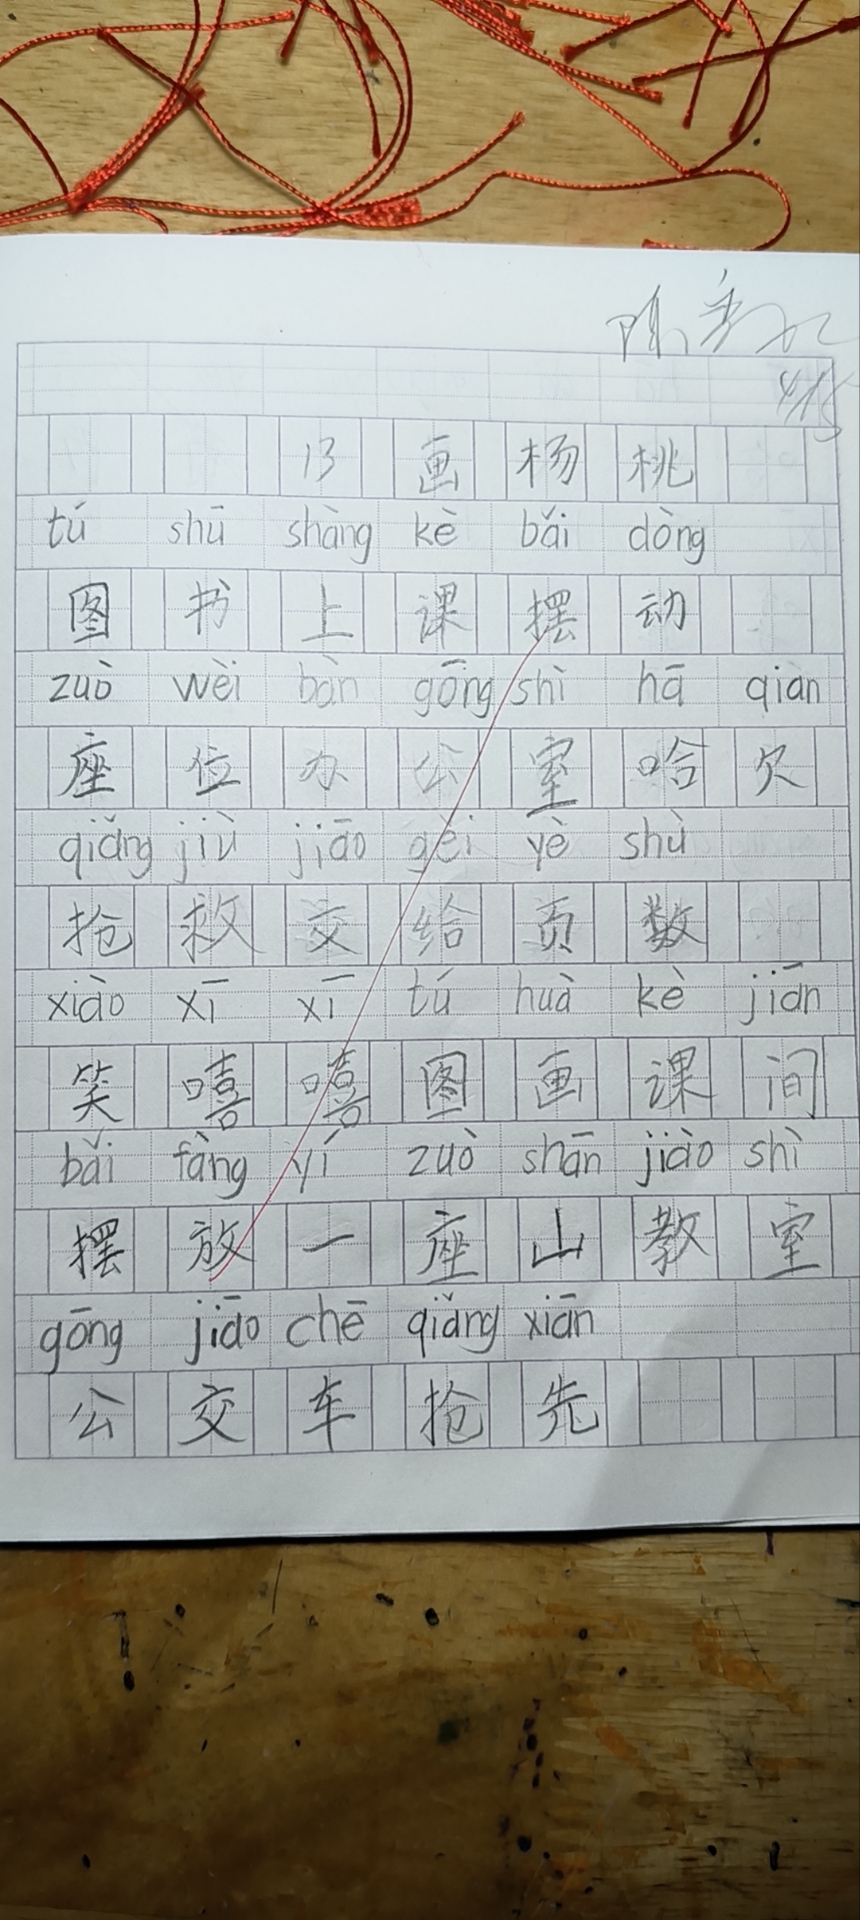 4/15
13 画杨桃
tú shū shàng kè bǎi dòng
图书上课摆动
zuò wèi bàn gōng shì hā qiàn
座位办公室哈欠
qiǎng jiù jiāo gěi yè shù
抢救交给页数
xiào xī xī tú huà kè jiān
笑嘻嘻图画课间
bǎi fàng yí zuò shān jiào shì
摆放一座山教室
gōng jiāo chē qiǎng xiān
公交车抢先